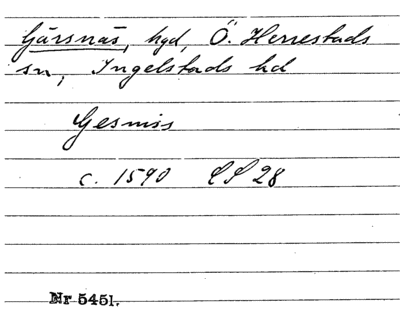 Gärsnäs, hgd, Ö. Herrestads
sn, Ingelstads hd
Gesnis
c. 1590 LS 28
Nr 5451.